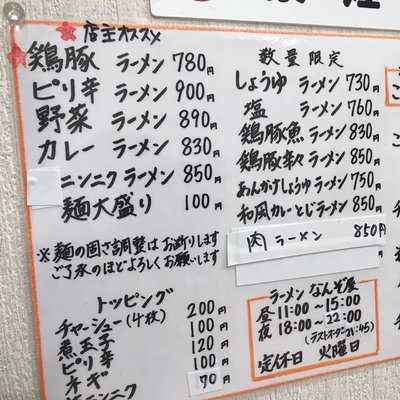 店主オススメ
鶏豚 ラーメン 780円
ピリ辛 ラーメン 900円
野菜 ラーメン 890円
カレー ラーメン 830円
ニンニク ラーメン 850円
麺大盛り 100円
※麺の固さ調整はお断りします
ご了承のほどよろしくお願いします
トッピング
200円
チャーシュー(4枚) 100円
煮玉子 120円
ピリ辛 100円
ネギ 70円
ニンニク
数量限定
しょうゆ ラーメン 730円
塩 ラーメン 760円
鶏豚魚 ラーメン 830円
鶏豚辛々 ラーメン 850円
あんかけしょうゆ ラーメン 750円
和風カレーとじ ラーメン 850円
肉 ラーメン 850円
ラーメン なんぞ屋
昼 11:00～15:00
夜 18:00～22:00
(ラストオーダー21:45)
定休日 火曜日